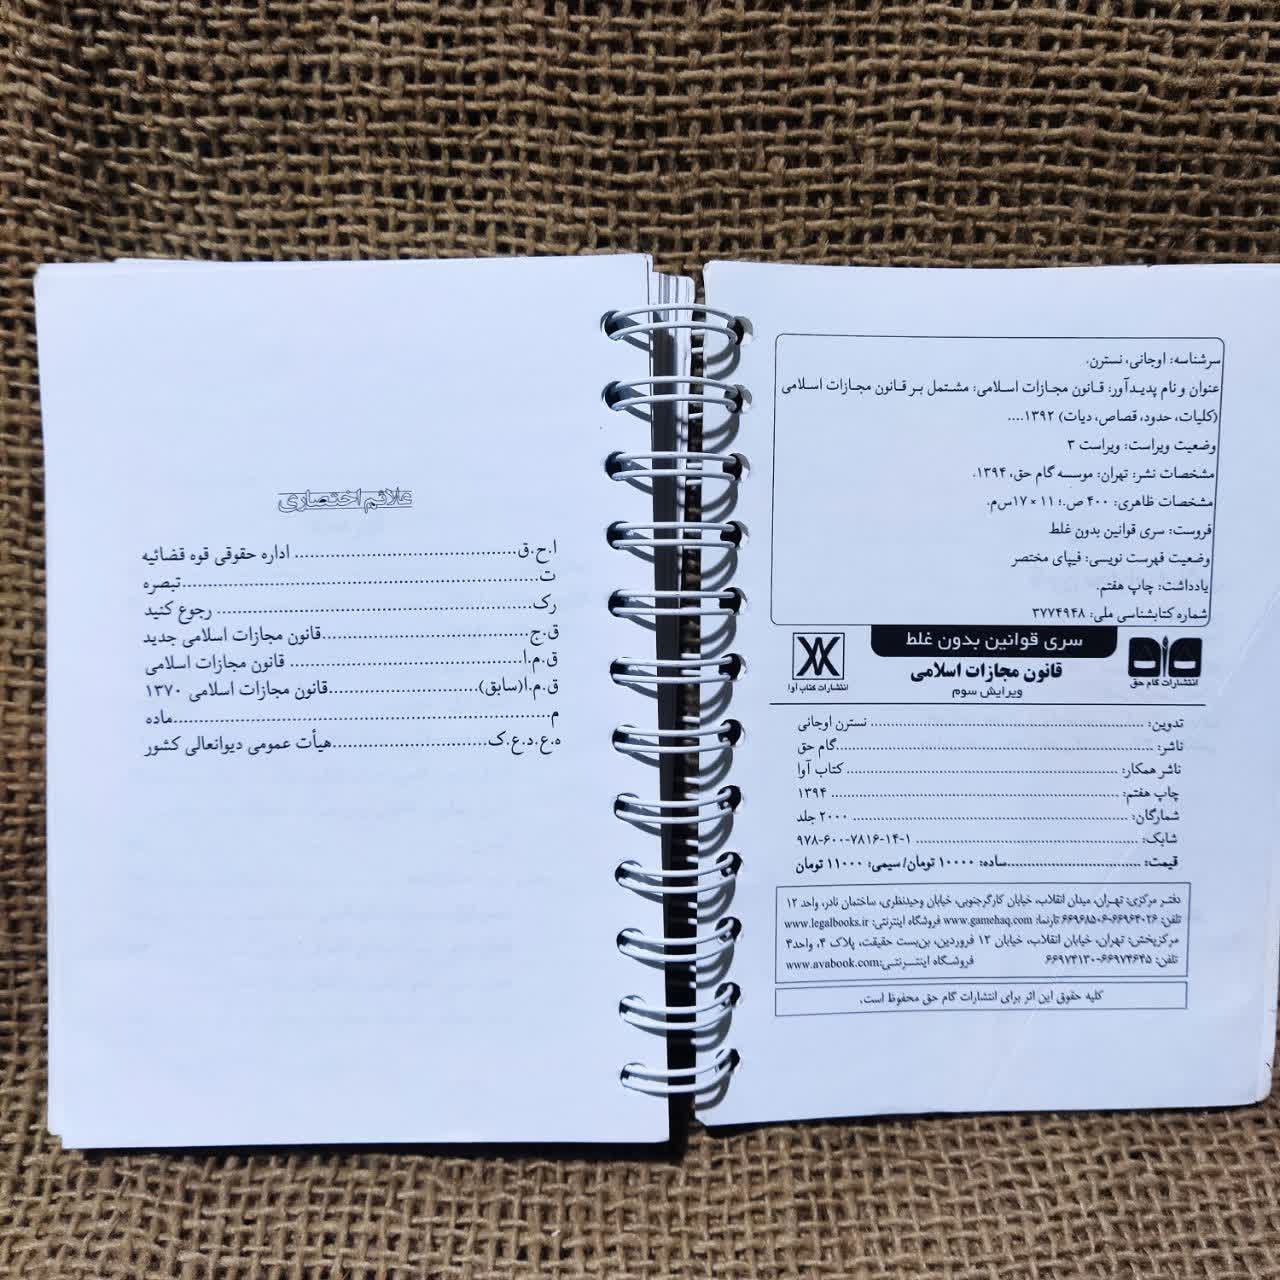 سرشناسه: اوجانی، نسترن.
عنوان و نام پدیدآور: قانون مجازات اسلامی: مشتمل بر قانون مجازات اسلامی
(کلیات، حدود، قصاص، دیات) ۱۳۹۲....
وضعیت ویراست: ویراست ۳
مشخصات نشر: تهران: موسسه گام حق، ۱۳۹۴.
مشخصات ظاهری: ۴۰۰ ص.؛ ۱۱ × ۱۷س‌م.
فروست: سری قوانین بدون غلط
وضعیت فهرست نویسی: فیپای مختصر
یادداشت: چاپ هفتم.
شماره کتابشناسی ملی: ۳۷۷۴۹۴۸
انتشارات گام حق
سری قوانین بدون غلط
قانون مجازات اسلامی
ویرایش سوم
انتشارات کتاب آوا
تدوین: ........ نسترن اوجانی
ناشر: ........ گام حق
ناشر همکار: ........ کتاب آوا
چاپ هفتم: ........ ۱۳۹۴
شمارگان: ........ ۲۰۰۰ جلد
شابک: ........ ۹۷۸-۶۰۰-۷۸۱۶-۱۴-۱
قیمت: ........ ساده: ۱۰۰۰۰ تومان/ سیمی: ۱۱۰۰۰ تومان
دفتر مرکزی: تهران، میدان انقلاب، خیابان کارگرجنوبی، خیابان وحیدنظری، ساختمان نادر، واحد ۱۲
تلفن: ۶۶۹۶۴۰۲۶-۶۶۹۶۸۵۰۶ تارنما: www.gamehaq.com فروشگاه اینترنتی: www.legalbooks.ir
مرکزپخش: تهران، خیابان انقلاب، خیابان ۱۲ فروردین، بن‌بست حقیقت، پلاک ۴، واحد۴
تلفن: ۶۶۹۷۴۶۴۵-۶۶۹۷۴۱۳۰ فروشگاه اینترنتی: www.avabook.com
کلیه حقوق این اثر برای انتشارات گام حق محفوظ است.
علائم اختصاری
ا.ح.ق ........ اداره حقوقی قوه قضائیه
ت ........ تبصره
رک ........ رجوع کنید
ق.ج ........ قانون مجازات اسلامی جدید
ق.م.ا ........ قانون مجازات اسلامی
ق.م.ا(سابق) ........ قانون مجازات اسلامی ۱۳۷۰
م ........ ماده
ه.ع.د.ع.ک ........ هیأت عمومی دیوانعالی کشور